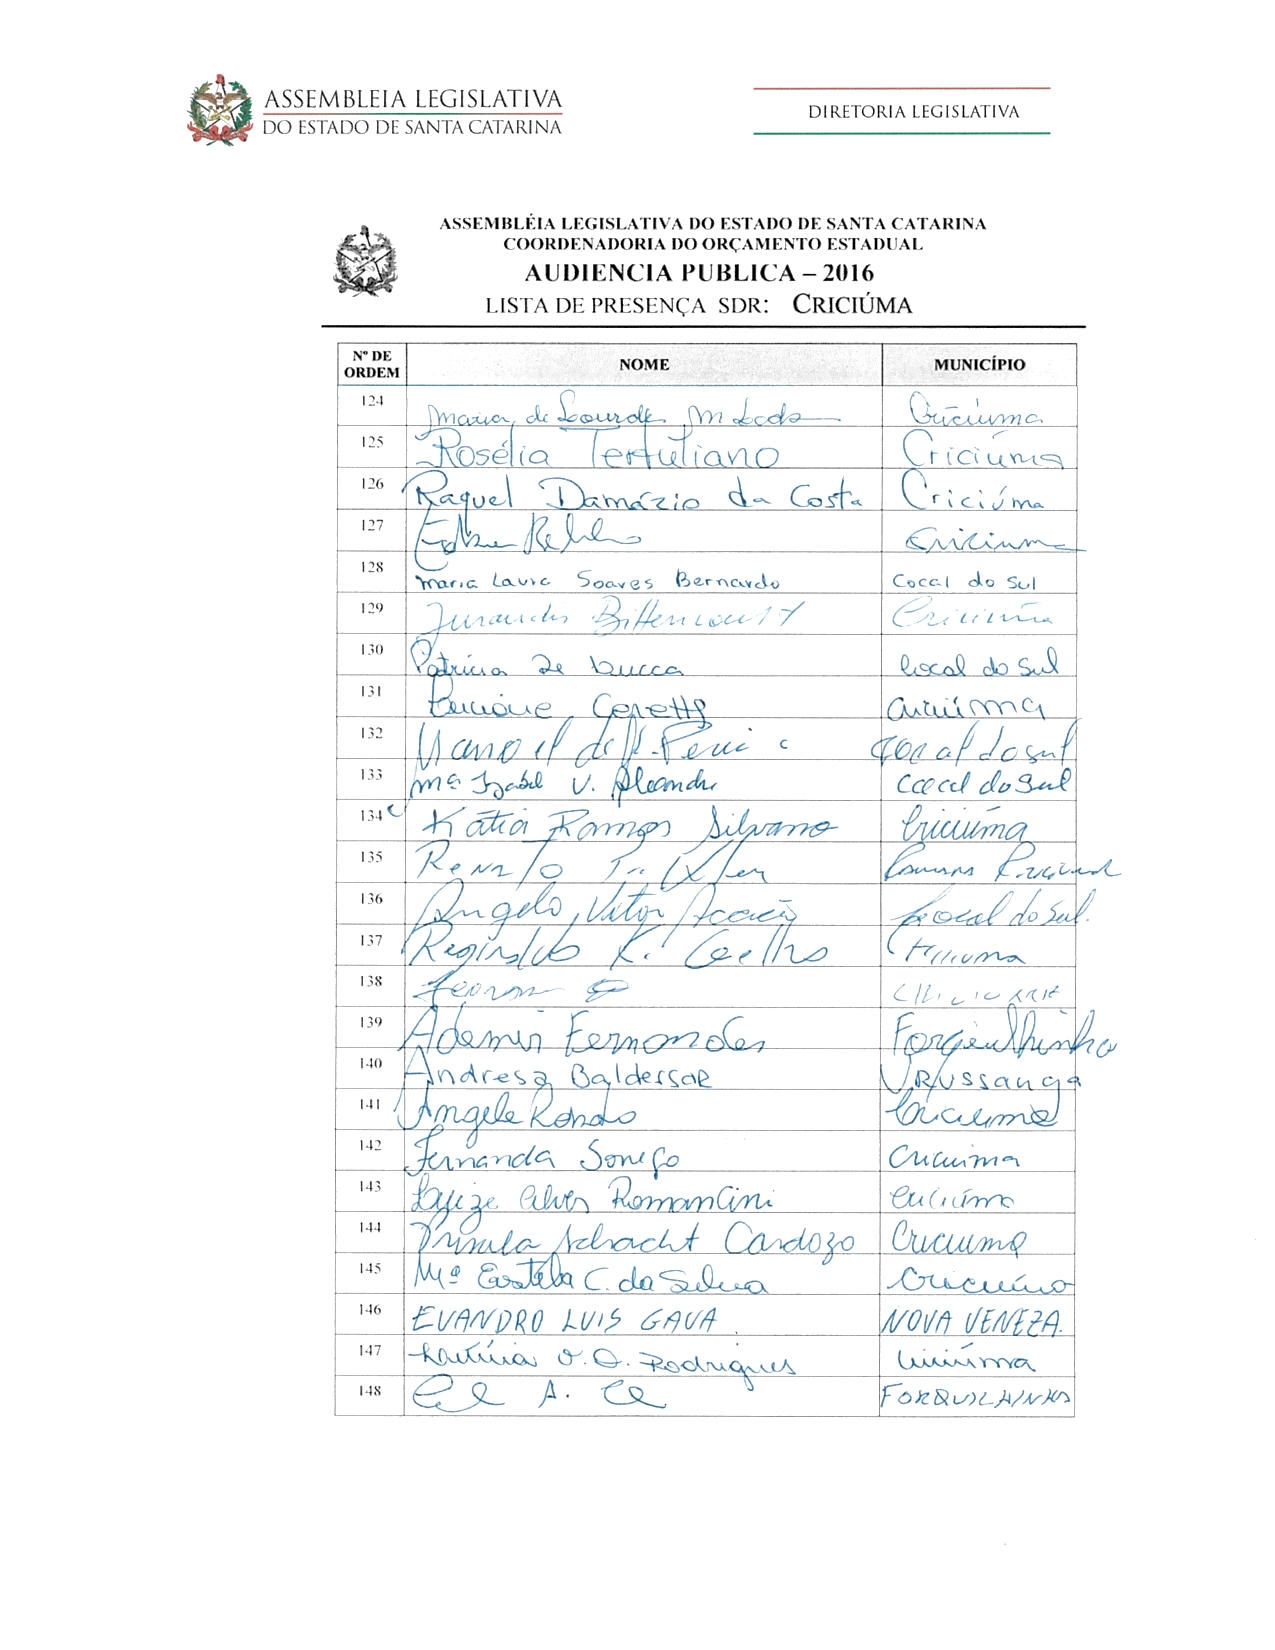 ASSEMBLEIA LEGISLATIVA
DO ESTADO DE SANTA CATARINA
DIRETORIA LEGISLATIVA
ASSEMBLÉIA LEGISLATIVA DO ESTADO DE SANTA CATARINA
COORDENADORIA DO ORÇAMENTO ESTADUAL
AUDIENCIA PUBLICA – 2016
LISTA DE PRESENÇA SDR: CRICIÚMA
Nº DE ORDEM NOME MUNICÍPIO
124 Maria de Lourdes M Criciúma
125 Rosélia Tertuliano Criciúma
126 Raquel Damázio da Costa Criciúma
127 Criciuma
128 Maria Laura Soares Bernardo Cocal do Sul
129 Jurandir Bittencourt Criciúma
130 Patrícia De Lucca Cocal do Sul
131 Criciúma
132 Manoel Cocal do Sul
133 Mª Izabel V. Cocal do Sul
134 Kátia Ramos Silvano Criciúma
135 Renato
136 Angelo Vitor Cocal do Sul.
137 Reginaldo K. Coelho Criciuma
138
139 Ademir Fernandes Forquilhinha
140 Andresa Baldessar Urussanga
141 Criciuma
142 Fernanda Sonego Criciuma
143 Layze Alves Romancini Criciúma
144 Schacht Cardozo Criciuma
145 Mª Estela C. da Silva Criciúma
146 EVANDRO LUIS GAVA NOVA VENEZA.
147 Rodrigues Criciúma
148 FORQUILHINHA